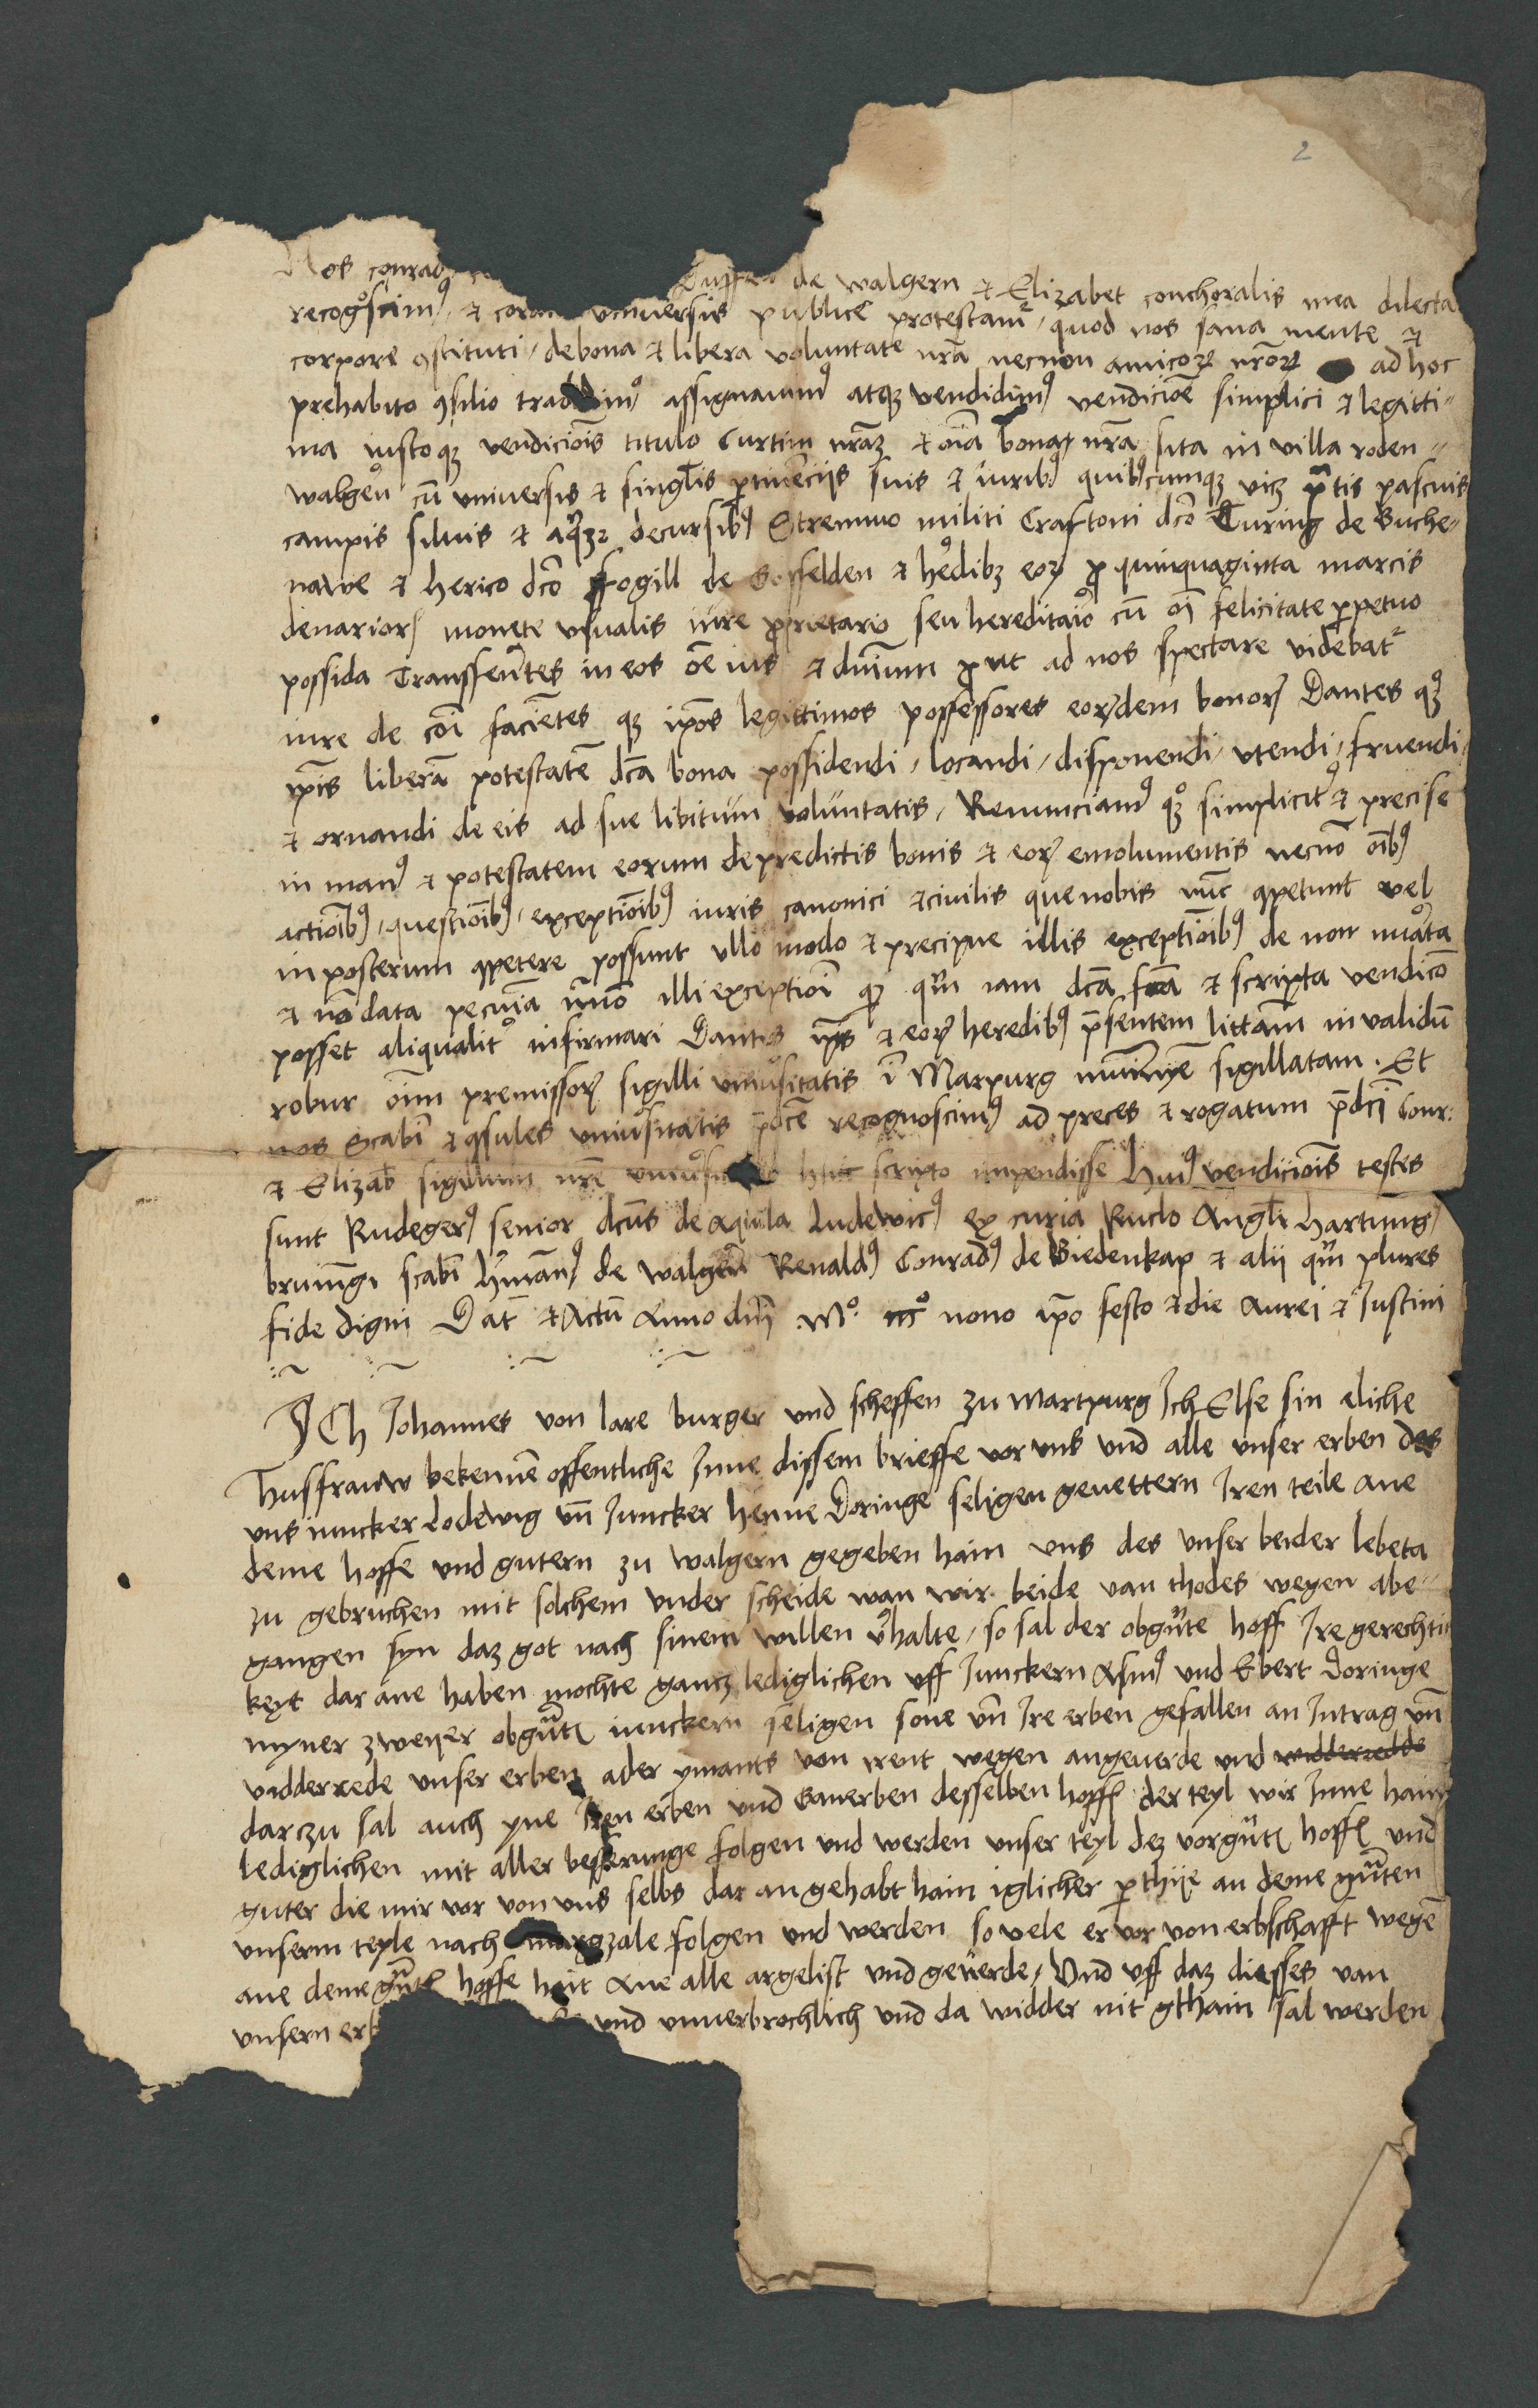 2
Nos conrad de walgern et Elizabet conthoralis mea dilecta
recognoscimꝰ et coram universis publice protestamur quod nos sana mente et
corpore ꝯstituti / de bona et libera voluntate nr̄a necnon amicoꝝ nr̄oꝝ ad hoc
prehabito ꝯsilio assignavimꝰ atqꝫ vendidimꝰ vendicioē simplici et legitti⸗
ma iustoqꝫ vendiciōis titulo Curtim nr̄aꝫ et oīa bona nr̄a sita in villa roden⸗
walgern cū universis et singl̄is ꝑtinēciis suis et iuribꝰ quibꝰcumqꝫ vicꝫ pratis pascuis
campis silvis et aqꝫ decursibꝰ Strennuo militi Craftoni dc̄o During de Buche⸗
nawe et herico dc̄o fogill de Gosfelden et h'edibꝫ eoꝝ ꝓ quinquaginta marcis
denarioꝝ monete usualis iure ꝓprietario seu hereditaio cū oī felicitate ꝑpetuo
possida Transferētes in eos oē ius et dn̄ium ꝓut ad nos spectare videbat᷑
iure de cōi faciētes qꝫ ip̄os legittimos possessores eoꝝdem bonoꝝ Dantes qꝫ
ip̄is liberā potestatē dc̄a bona possidendi / locandi / disponendi / utendi / fruendi /
et ornandi de eis ad sue libitum voluntatis / Renunciamꝰ qꝫ simplicit' et precise
in manꝰ et potestatem eorum de predictis bonis et eoꝝ emolumentis necnō oībꝰ
actiōibꝰ / questiōibꝰ / exceptiōibꝰ iuris canonici et civilis que nobis nūc ꝯpetunt vel
in posterum ꝯpetere possunt ullo modo et precipue illis exceptiōibꝰ de non nu'ata
et nō data pecunia illi exceptiōi qꝫ iam dc̄a fc̄a et scripta vendicō
posset aliqualit' infirmari Dantes ip̄is et eoꝝ heredibꝰ p̄sentem litt'am in validū
robur oīm premissoꝝ sigilli univ'sitatis ī Marpurg munimīe sigillatam . Et
nos Scabī et ꝯsules univ'sitatis p̄dc̄e recognoscimꝰ ad preces et rogatum p̄dc̄i Conr:
et Elizab̄ sigillum nr̄e huic scripto impendisse huiꝰ vendiciōis testes
sunt Rudegerꝰ senior dc̄us de aquila Ludewicꝰ ex curia Ruclo Angl̄i hartung
bruningi scabī h'manꝰ de walgern Renaldꝰ Conradꝰ de Biedenkap et alii qm̄ plures
fide digni Dat̄ et Actū Anno dn̄i M° nono ip̄o festo et die Aurei et Justini
ICh Johannes von lare burger und scheffen zu Martpurg Ich Else sin eliche
husfrauw bekennē offentliche Inne dissem brieffe vor uns und alle unser erben des
uns iuncker Lodewig uñ Juncker Henne Doringe seligen gevettern Iren teile ane
deme hoffe und gutern zu walgern gegeben hain uns des unser beider lebeta
zu gebruchen mit solchem under scheide wan wir beide van thodes wegen abe⸗
gangen syn daz got nach sinem willen v'halte / so sal der obgn̄te hoff Ire gerechti
keyt dar ane haben mochte gancz lediglichen uff Junckern Asmꝰ und Ebert Doringe
myner zweyer obgn̄ten iunckern seligen sone uñ Ire erben gefallen an Intrag uñ
widderrede unser erben ader ymants von irent wegen angeverde und widderredde
darczu sal auch yne Iren erben und Ganerben desselben hoffs der teyl wir Inne hain
lediglichen mit aller besserunge folgen und werden unser teyl dez vorgn̄ten hoffs und
guter die mir vor von uns selbs dar an gehabt hain iglicher parthije an deme gn̄ten
unserm teyle nach margzale folgen und werden so vele er vor von erbschafft wegē
ane deme gn̄ten hoffe hait Ane alle argelist und geverde / Und uff daz diesses van
unsern erb und unverbrochlich und da widder nit gthain sal werden